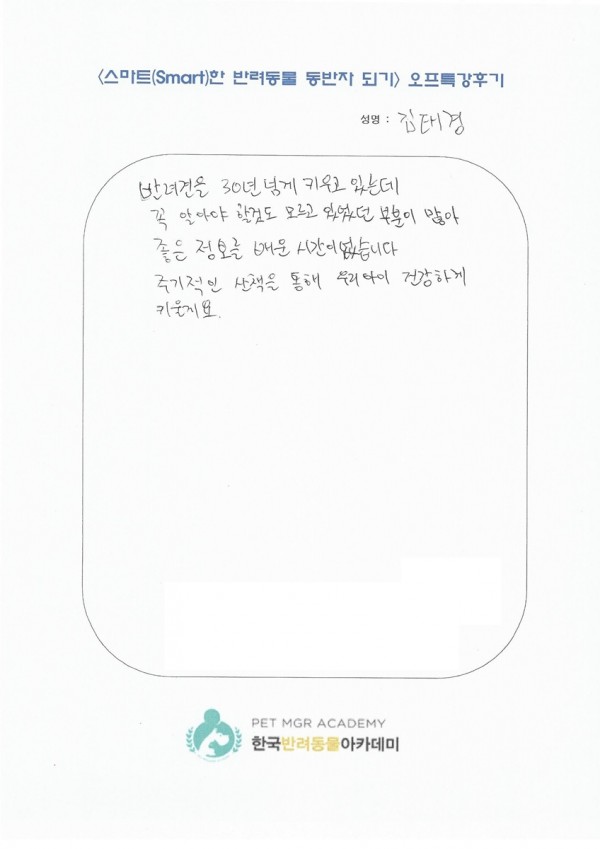 <스마트(Smart)한 반려동물 동반자 되기> 오프특강후기
성명 : 김태경
반려견을 30년 넘게 키우고 있는데
꼭 알아야 할것도 모르고 있었던 부분이 많아
좋은 정보를 배운 시간이였습니다
주기적인 산책을 통해 우리아이 건강하게
키울게요.
PET MGR ACADEMY
한국반려동물아카데미